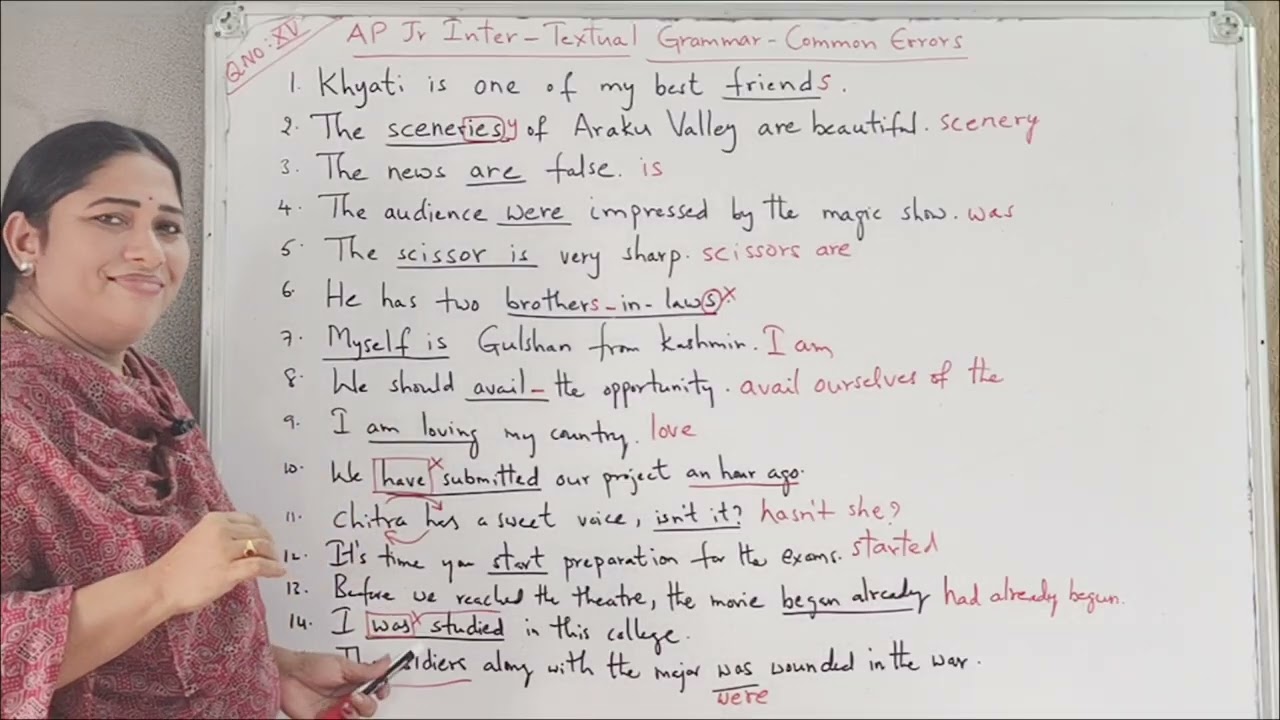 Q.NO: XV
AP Jr Inter - Textual Grammar - Common Errors
1. Khyati is one of my best friends.
2. The sceneriesy of Araku Valley are beautiful. scenery
3. The news are false. is
4. The audience were impressed by the magic show. was
5. The scissor is very sharp. scissors are
6. He has two brothers-in-laws x.
7. Myself is Gulshan from Kashmir. I am
8. We should avail - the opportunity. avail ourselves of the
9. I am loving my country. love
10. We have x submitted our project an hour ago.
11. Chitra has a sweet voice, isn't it? hasn't she?
12. It's time you start preparation for the exams. started
13. Before we reached the theatre, the movie began already had already begun.
14. I was x studied in this college.
along with the major was wounded in the war.
were